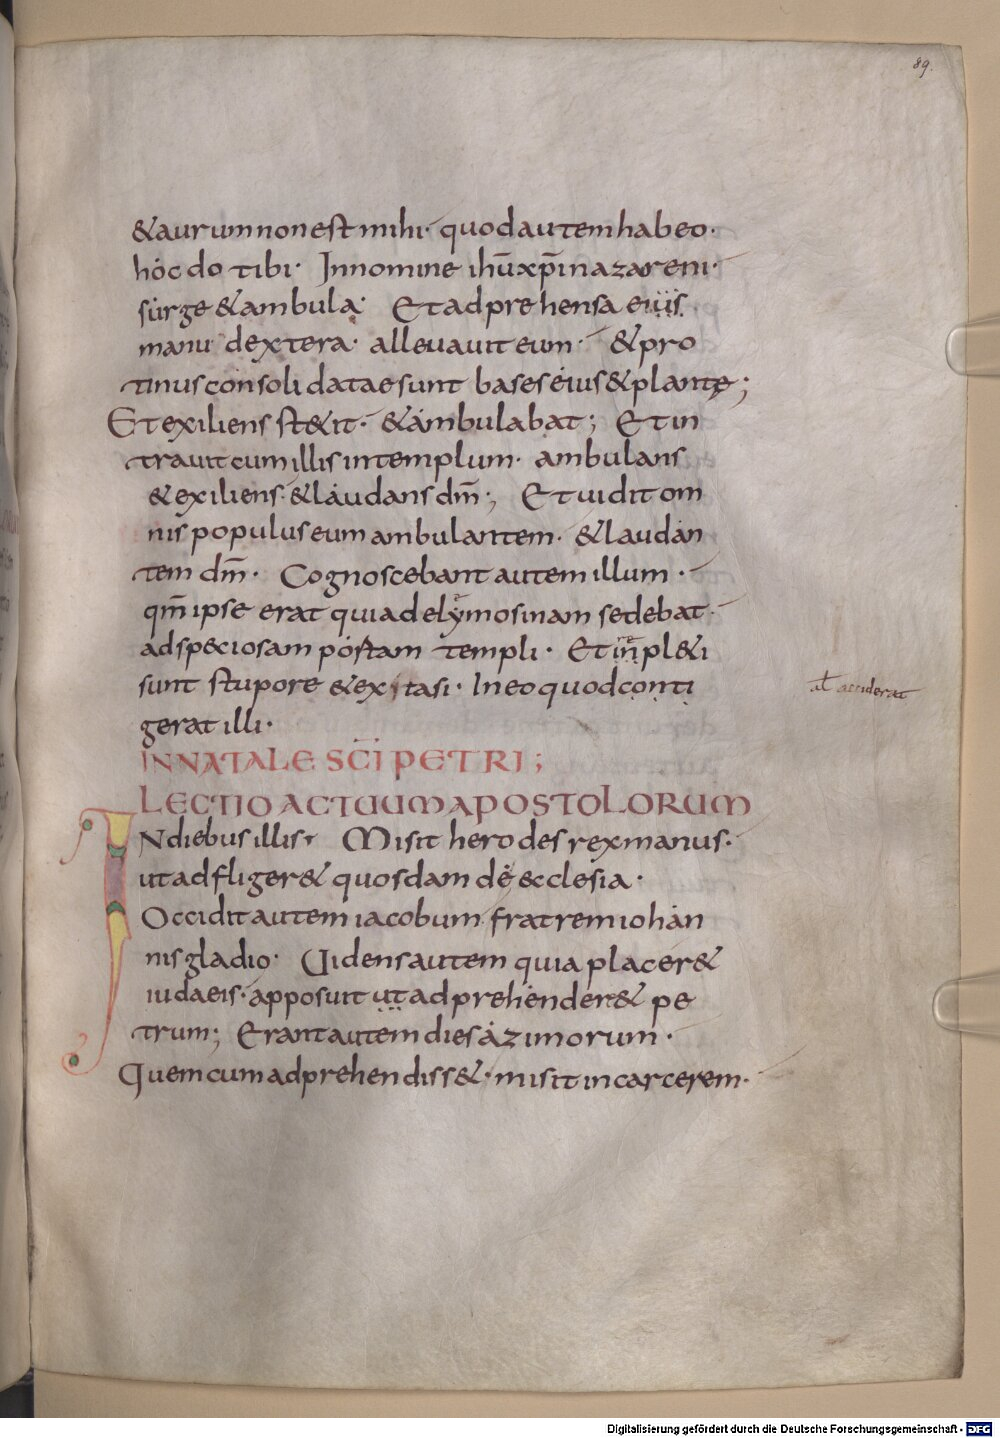 89.
&aurum non est mihi· quod autem habeo·
hoc do tibi· In nomine ihū xp̄i nazareni·
surge &ambula· Et adprehensa eius
manu dextera· alleuauit eum· &pro
tinus consolidatae sunt bases eius &plantę;
Et exiliens st&it· &ambulabat; Et in
trauit cum illis in templum· ambulans
&exiliens· &laudans dm̄; Et uidit om
nis populus eum ambulantem· &laudan
tem dm̄· Cognoscebant autem illum·
qm̄ ipse erat quia d elymosinam sedebat·
ad speciosam portam templi· Et inpl&i
sunt stupore &extasi· In eo quod conti
ał acciderat
gerat illi·
IN NATALE SC̄I PETRI;
LECTIO ACTUUM APOSTOLORUM
IN diebus illis· Misit herodes rex manus·
ut adfliger& quosdam de &cclesia·
Occidit autem iacobum fratrem iohan
nis gladio· Uidens autem quia placer&
iudaeis· apposuit ut adprehender& pe
trum; Erant autem dies azimorum·
Quem cum adprehendiss&· misit in carcerem·
Digitalisierung gefördert durch die Deutsche Forschungsgemeinschaft - DFG